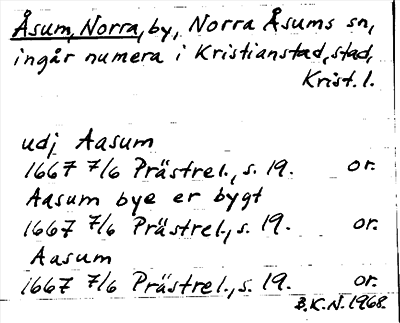 Åsum, Norra, by, Norra Åsums sn,
ingår numera i Kristianstad, stad,
Krist. l.
udj Aasum
1667 7/6 Prästrel., s. 19. or.
Aasum bye er bygt
1667 7/6 Prästrel., s. 19. or.
Aasum
1667 7/6 Prästrel., s. 19. or.
B.K.N. 1968.